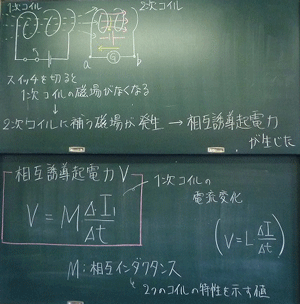 1次コイル
2次コイル
S
a
G
b
スイッチを切ると
1次コイルの磁場がなくなる
↓
2次コイルに補う磁場が発生 → 相互誘導起電力
が生じた
相互誘導起電力 V
V = M ΔI₁/Δt
1次コイルの
電流変化
(V = L ΔI/Δt)
M : 相互インダクタンス
2つのコイルの特性を示す値